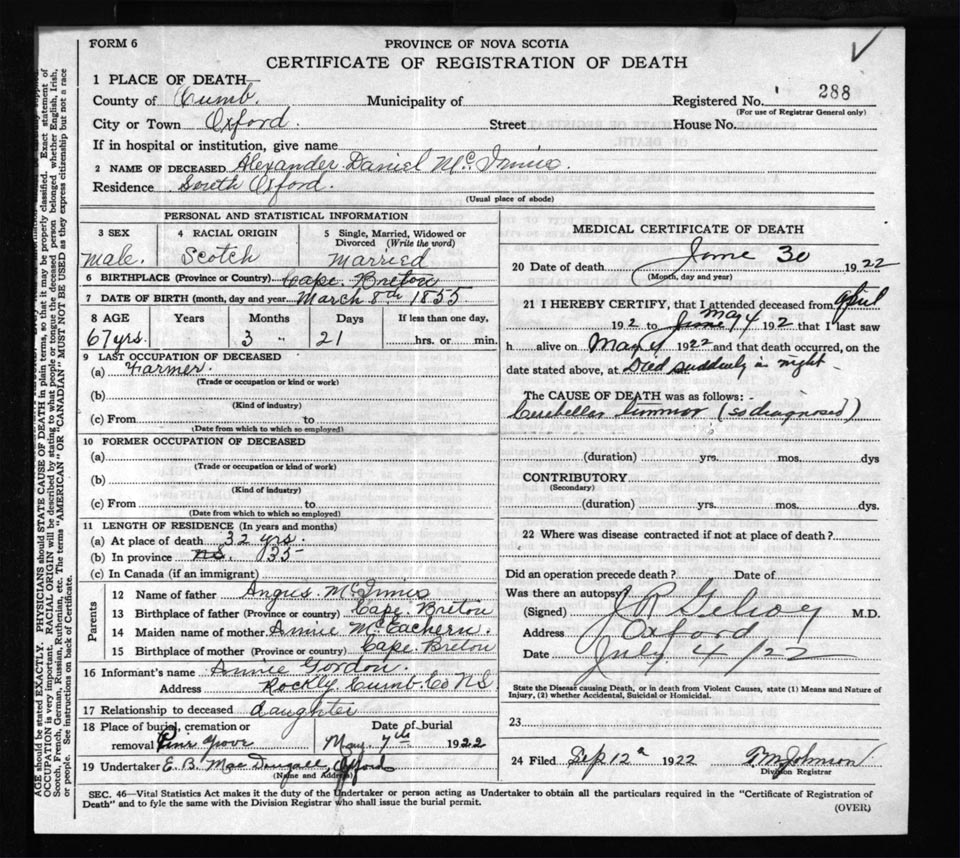 FORM 6
PROVINCE OF NOVA SCOTIA
CERTIFICATE OF REGISTRATION OF DEATH
1 PLACE OF DEATH
County of Cumb. Municipality of Registered No. 288
(For use of Registrar General only)
City or Town Oxford. Street House No.
If in hospital or institution, give name
2 NAME OF DECEASED Alexander Daniel McInnis.
Residence South Oxford.
(Usual place of abode)
PERSONAL AND STATISTICAL INFORMATION
3 SEX 4 RACIAL ORIGIN 5 Single, Married, Widowed or Divorced (Write the word)
male. Scotch married
6 BIRTHPLACE (Province or Country) Cape Breton
7 DATE OF BIRTH (month, day and year March 8th 1855
8 AGE Years Months Days If less than one day,
67 yrs. 3 " 21 hrs. or min.
9 LAST OCCUPATION OF DECEASED
(a) Farmer.
(Trade or occupation or kind or work)
(b)
(Kind of industry)
(c) From to
(Date from which to which so employed)
10 FORMER OCCUPATION OF DECEASED
(a)
(Trade or occupation or kind of work)
(b)
(Kind of industry)
(c) From to
(Date from which to which so employed)
11 LENGTH OF RESIDENCE (In years and months)
(a) At place of death 32 yrs.
(b) In province ns. 35
(c) In Canada (if an immigrant)
Parents
12 Name of father Angus McInnis
13 Birthplace of father (Province or country) Cape Breton
14 Maiden name of mother Annie McEachern.
15 Birthplace of mother (Province or country) Cape Breton
16 Informant's name Annie Gordon.
Address Rockly Cumb. Co NS
17 Relationship to deceased daughter
18 Place of burial, cremation or removal Pine Grove Date of burial May 7th 1922
19 Undertaker E. B. MacDougall, Oxford
(Name and Address)
MEDICAL CERTIFICATE OF DEATH
20 Date of death June 30 1922
(Month, day and year)
21 I HEREBY CERTIFY, that I attended deceased from April
192 to June May 4 192 that I last saw
h alive on May 4 1922 and that death occurred, on the
date stated above, at Died suddenly in night
The CAUSE OF DEATH was as follows:-
Cerebellar tummor (so diagnosed)
(duration) yrs. mos. dys
CONTRIBUTORY
(Secondary)
(duration) yrs. mos. dys.
22 Where was disease contracted if not at place of death?
Did an operation precede death? Date of
Was there an autopsy?
(Signed) J R Gilroy M.D.
Address Oxford
Date July 4/22
State the Disease causing Death, or in death from Violent Causes, state (1) Means and Nature of
Injury, (2) whether Accidental, Suicidal or Homicidal.
23
24 Filed Sep 12 1922 Johnson
Division Registrar
SEC. 46—Vital Statistics Act makes it the duty of the Undertaker or person acting as Undertaker to obtain all the particulars required in the "Certificate of Registration of
Death" and to fyle the same with the Division Registrar who shall issue the burial permit.
(OVER)
AGE should be stated EXACTLY. PHYSICIANS should STATE CAUSE OF DEATH in plain terms, so that it may be properly classified. Exact statement of
OCCUPATION is very important. RACIAL ORIGIN will be described by stating to what people or tongue the deceased person belonged whether English, Irish,
Scotch, French, German, Russian, Ruthenian, etc. The terms "AMERICAN" OR "CANADIAN" MUST NOT BE USED as they express citizenship but not a race
or people. See instructions on back of Certificate.